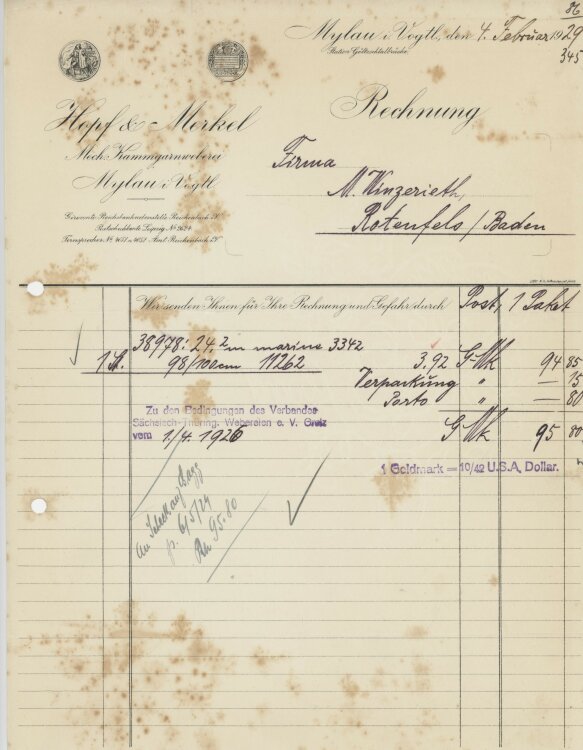 86
Mylau i. Vogtl., den 4. Februar 1929
Station Göltzschtalbrücke
345
Hopf & Merkel
Mech. Kammgarnweberei
Mylau i. Vogtl.
Rechnung
Firma
M. Winzerieth,
Rotenfels / Baden
Giroconto: Reichsbanknebenstelle Reichenbach i. V.
Postscheckkonto Leipzig № 9624
Fernsprecher: Amt Reichenbach i. V.
Wir senden Ihnen für Ihre Rechnung und Gefahr durch Post, 1 Paket
38978: 24,2 m marine 3342
1 St. 98/100 cm 11262 3.92 GMk 94 85
Verpackung " — 15
Porto " — 80
GMk 95 80
Zu den Bedingungen des Verbandes
Sächsisch-Thüring. Webereien e. V. Greiz
vom 1/4 1926
1 Goldmark = 10/42 U.S.A. Dollar.
p. 6/5/29
95.80